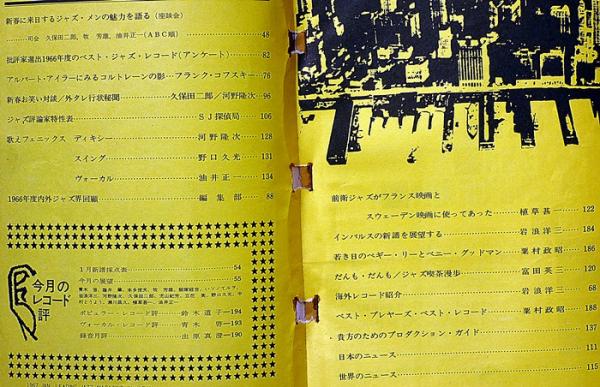 新春に来日するジャズ・メンの魅力を語る（座談会）
司会 久保田二郎，牧 芳雄，油井正一（ABC順） 48
批評家選出1966年度のベスト・ジャズ・レコード（アンケート） 82
アルバート・アイラーにみるコルトレーンの影 フランク・コフスキー 76
新春お笑い対談／外タレ行状秘聞 久保田二郎／河野隆次 96
ジャズ評論家特性表 SJ探偵局 106
歌えフェニックス ディキシー 河野隆次 128
スイング 野口久光 131
ヴォーカル 油井正一 134
1966年度内外ジャズ界回顧 編集部 88
今月の
レコード
評
1月新譜採点表 54
今月の展望 55
ポピュラー・レコード評 鈴木道子 194
ヴォーカル・レコード評 青木啓 193
録音月評 出原真澄 190
前衛ジャズがフランス映画と
スウェーデン映画に使ってあった 植草甚一 122
インパルスの新譜を展望する 岩浪洋三 184
若き日のペギー・リーとベニー・グッドマン 粟村政昭 186
だんも・だんも／ジャズ喫茶漫歩 富田英三 120
海外レコード紹介 岩浪洋三 68
ベスト・プレヤーズ・ベスト・レコード 粟村政昭 188
貴方のためのプロダクション・ガイド 137
日本のニュース 111
世界のニュース 115